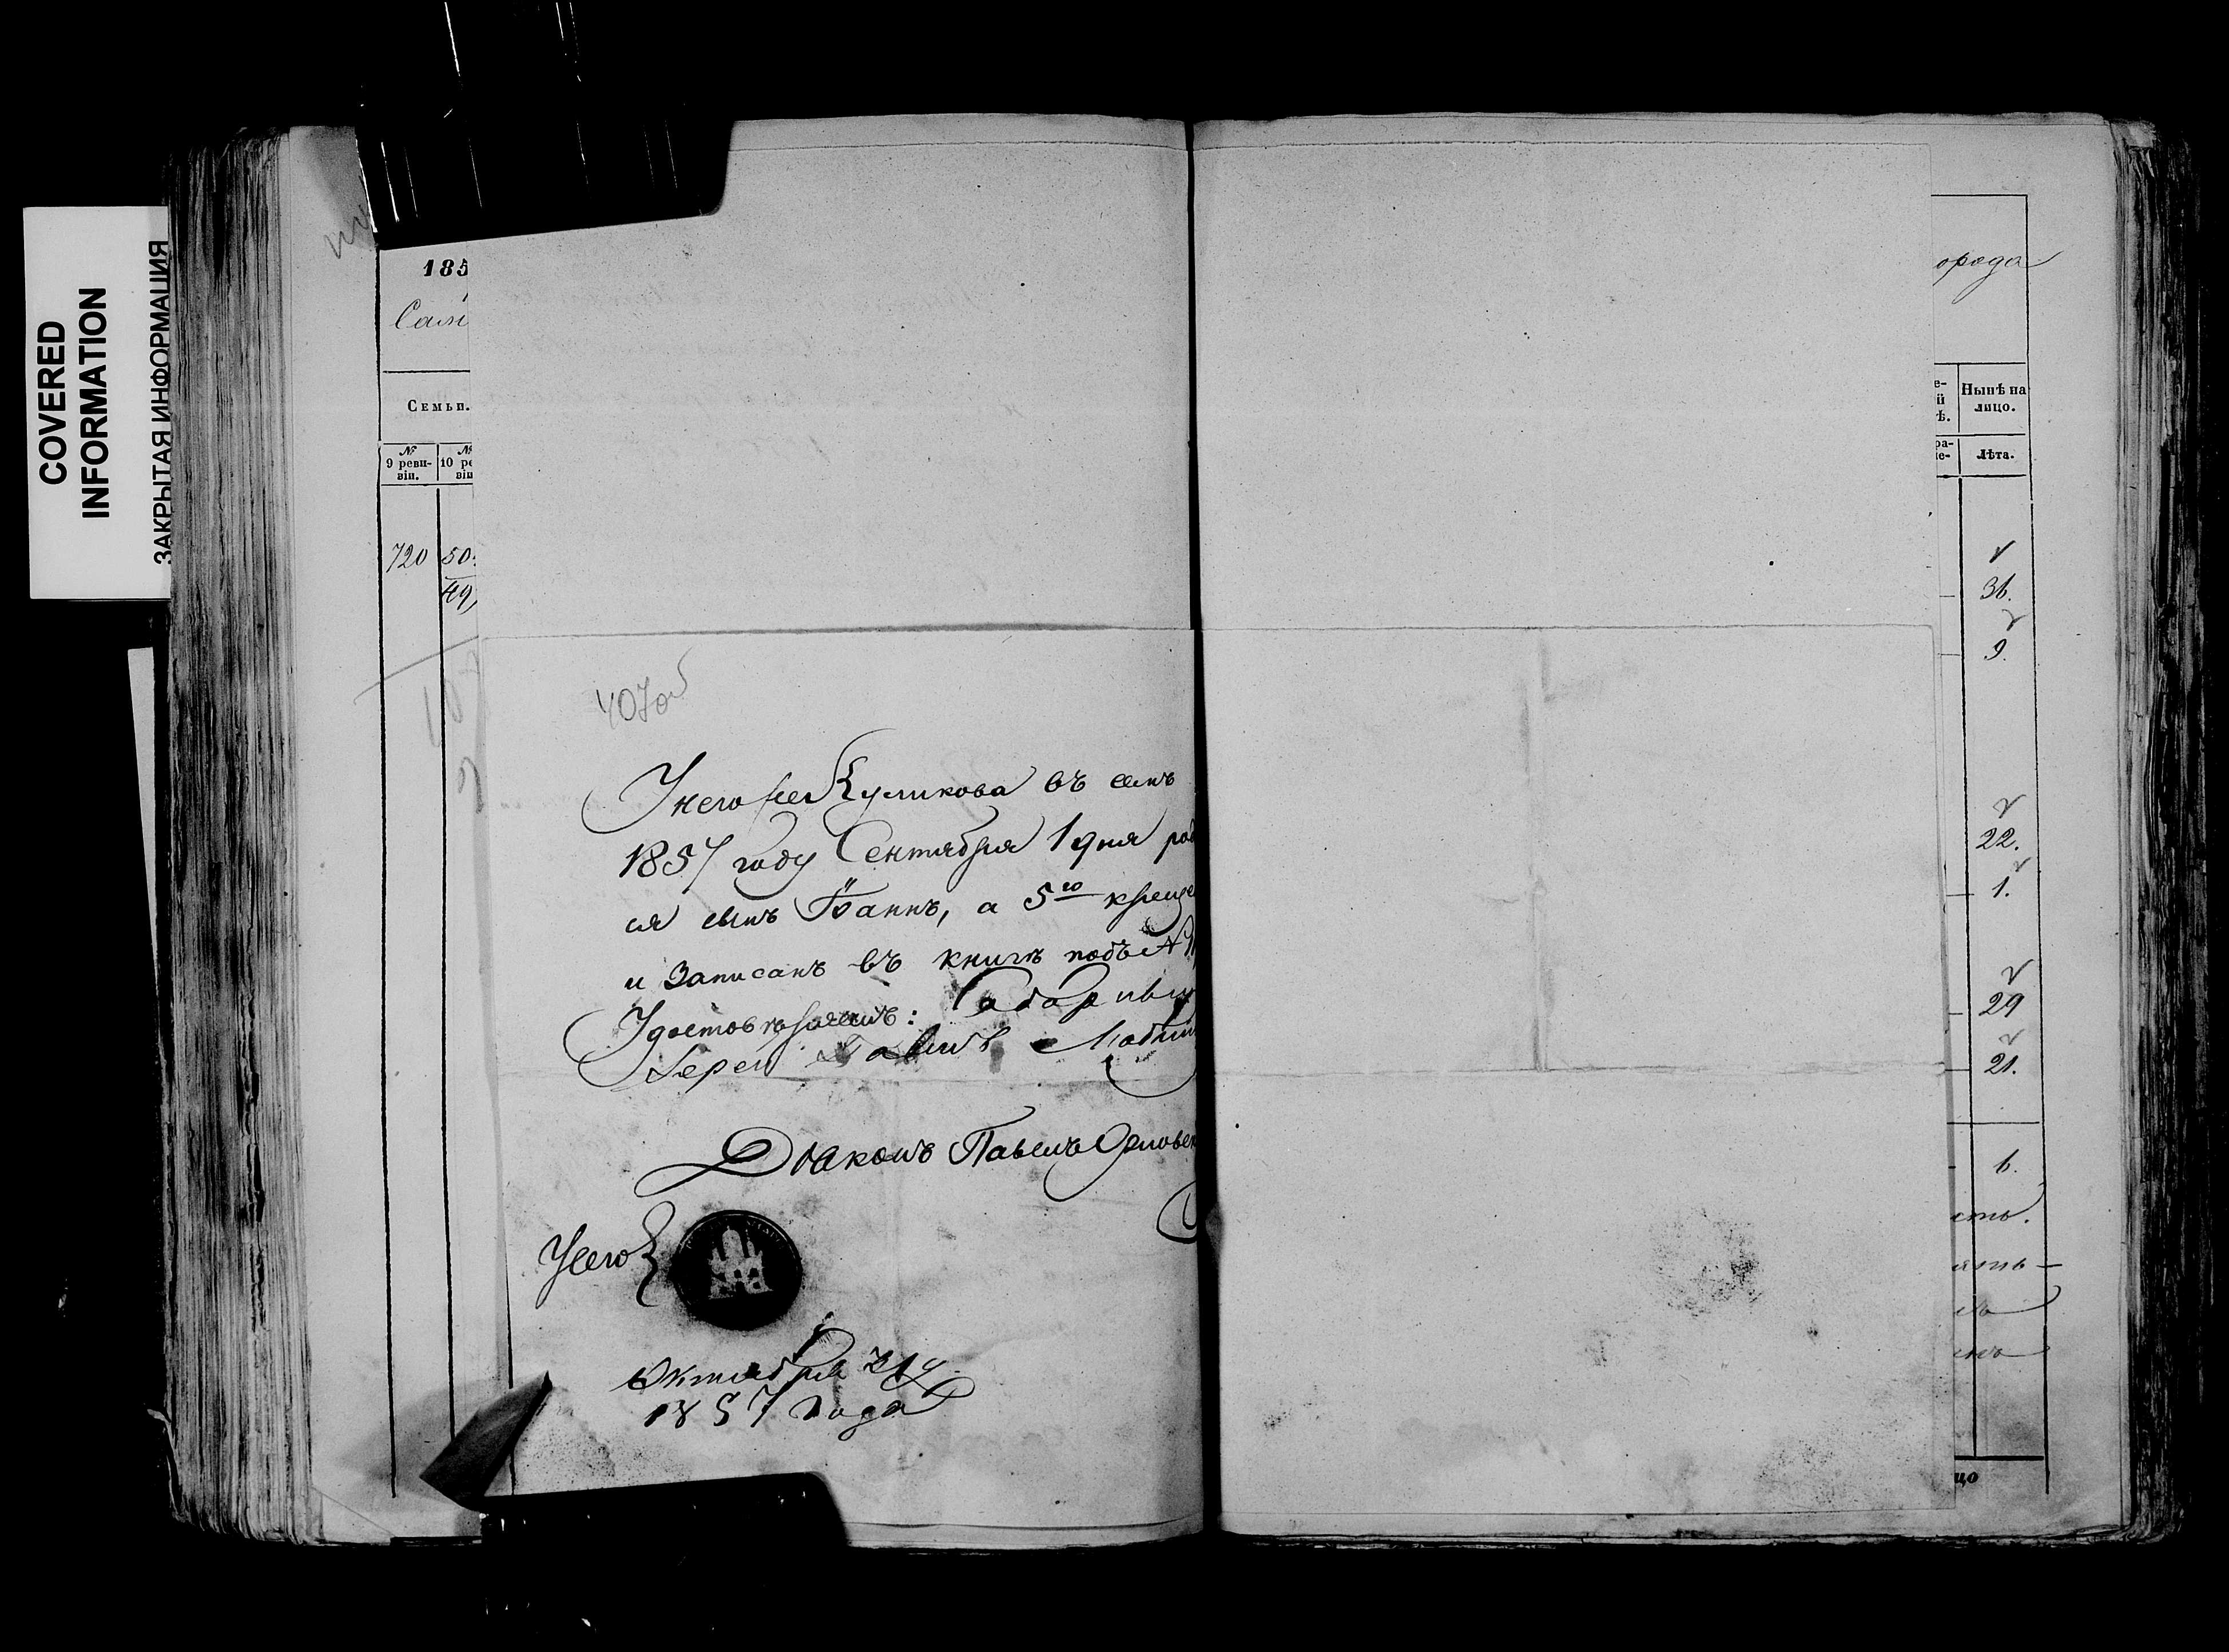 COVERED
INFORMATION
ЗАКРЫТАЯ ИНФОРМАЦИЯ
185
Сам
Семьи.
№ 9 ревизіи.
№ 10 ре
віи
720
50
49
407об
У него же Куликова въ семъ
1857 году Сентября 1 дня род
ся сынъ Іоаннъ, а 5го креще
и записанъ въ книгѣ подъ №
Удостовѣряемъ: Соборный
Іерей
Діаконъ Павелъ Орловск
У сего
Октября 21 д.
1857 года
орода
е-
й
ѣ.
Нынѣ на
лицо.
ра-
е-
Лѣта.
36.
9.
22.
1.
29
21.
6.
сть.
ять
цо